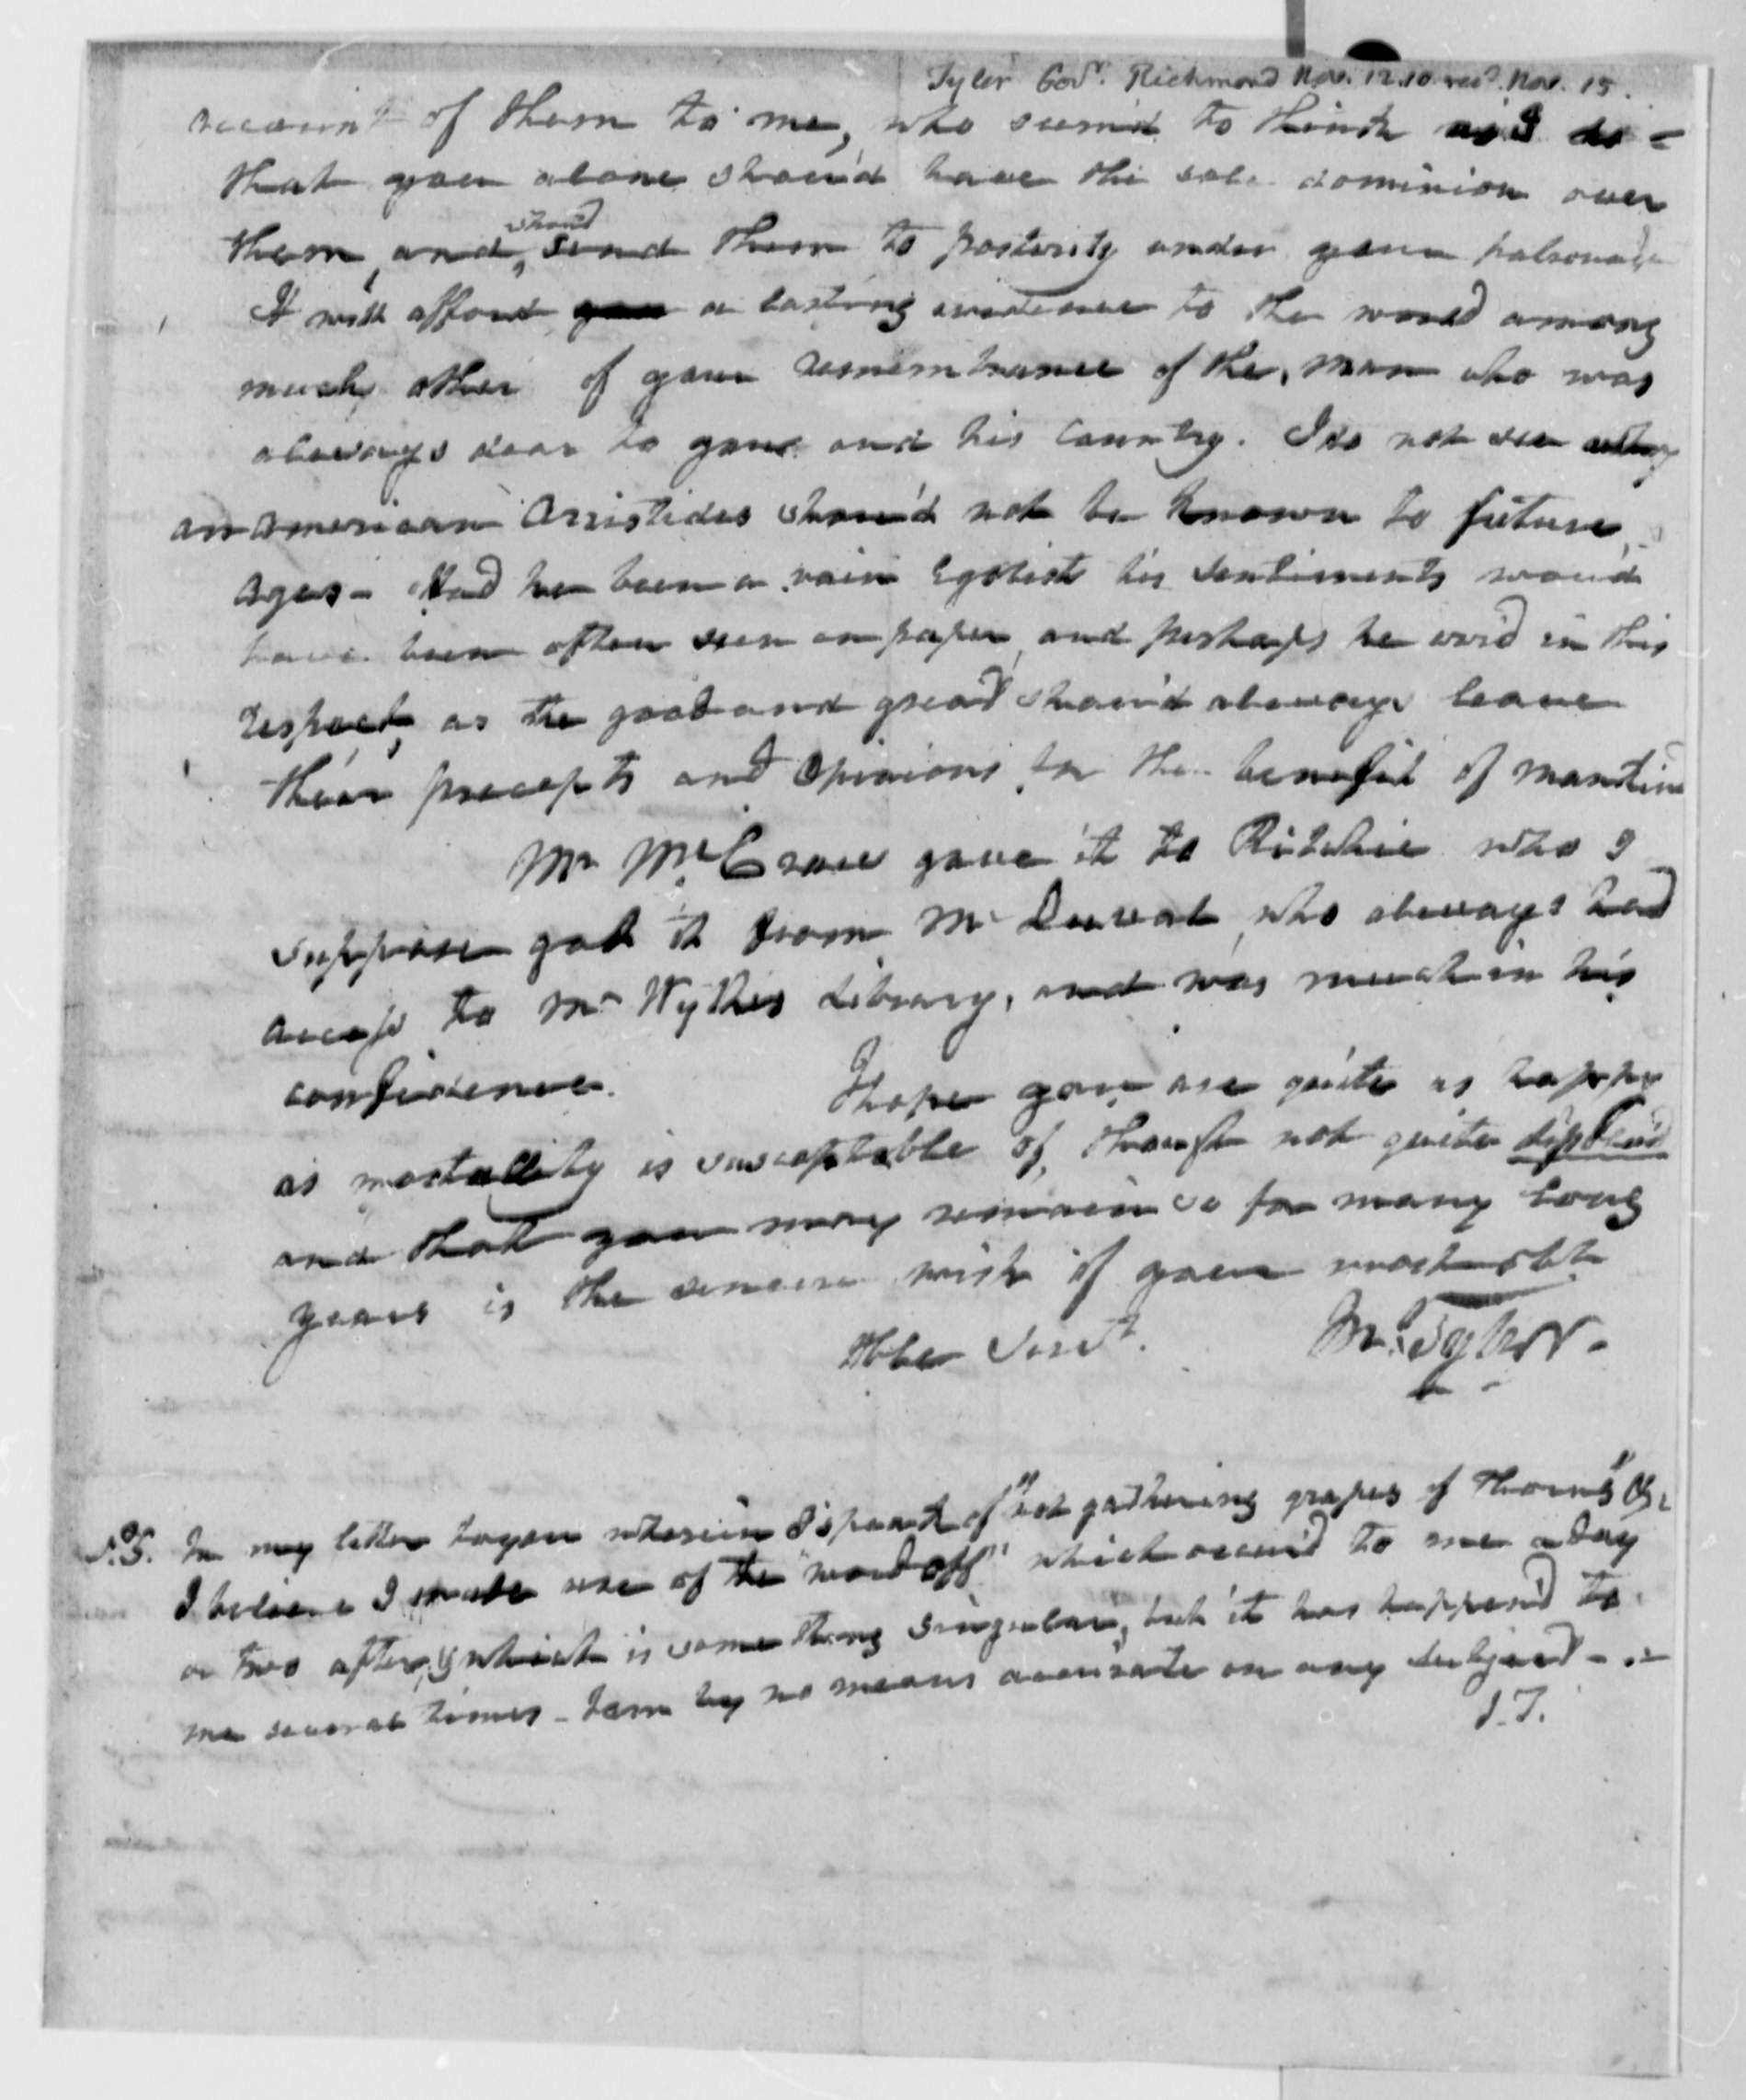 Tyler Govr. Richmond Nov. 12. 10. recd. Nov. 15.
account of them to me, who seem'd to think as I do –
that you alone shou'd have the sole dominion over
them, and shoud send them to posterity under your patronage
It will afford a lasting evidence to the world among
much other of your remembrance of the man who was
always dear to you and his Country. I do not see why
an American Arristides shou'd not be known to future
ages – Had he been a vain Egotist his sentiments wou'd
have been often seen on paper, and perhaps he err'd in this
respect, as the good and great shou'd always leave
their precepts and opinions for the benefit of mankind
Mr McCraw gave it to Ritchie who I
suppose got it from Mr Duval, who always had
access to Mr Wythes Library, and was much in his
confidence.
I hope you are quite as happy
as mortallity is susceptable of, though not quite
and that you may remain so for many long
years is the sincere wish of your most obt
Hble Servt.
Jn: Tyler.
P.S. In my letter to you wherein I speak of "not gathering grapes of Thorns" &c
I believe I made use of the word "off" which occur'd to me a day
or two after, which is some thing singular, but it has happen'd to
me several times – I am by no means accurate on any subject –
J. T.